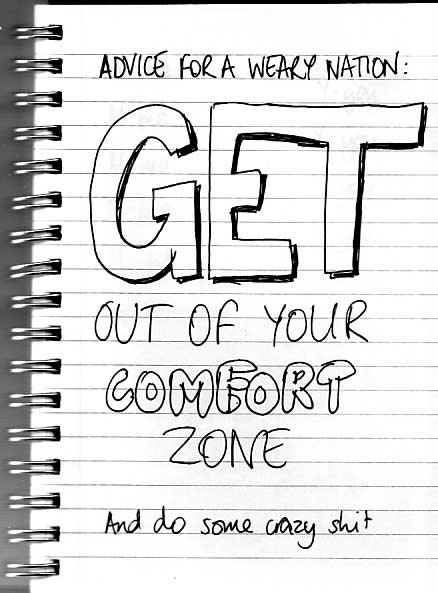 ADVICE FOR A WEARY NATION:
GET
OUT OF YOUR
COMFORT
ZONE
And do some crazy shit